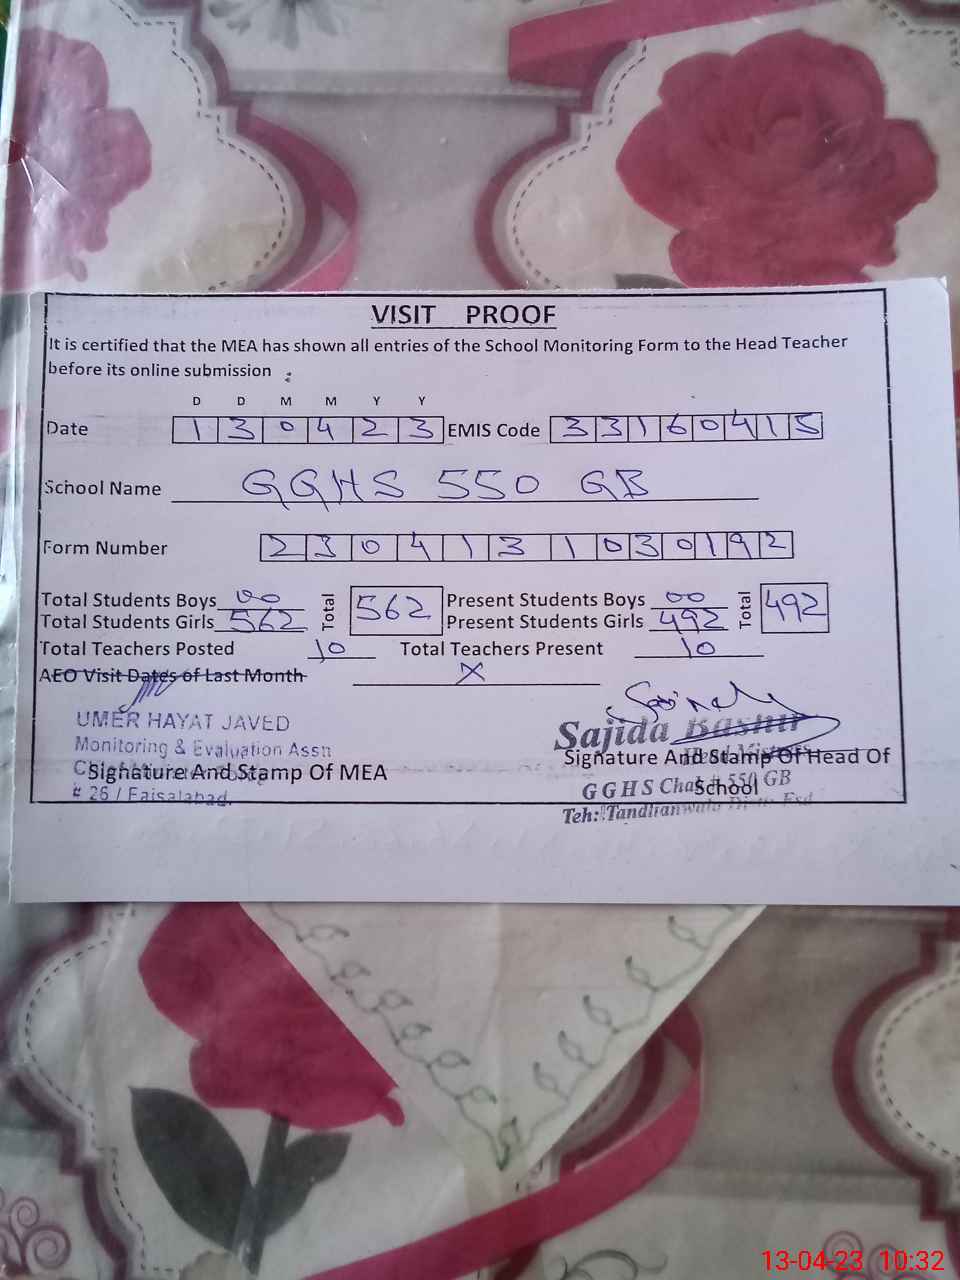 VISIT PROOF
It is certified that the MEA has shown all entries of the School Monitoring Form to the Head Teacher
before its online submission :
D D M M Y Y
Date 1 3 0 4 2 3 EMIS Code 3 3 1 6 0 4 1 5
School Name GGHS 550 GB
Form Number 2 3 0 4 1 3 1 0 3 0 1 9 2
Total Students Boys 00 Total 562 Present Students Boys 00 Total 492
Total Students Girls 562 Present Students Girls 492
Total Teachers Posted 10 Total Teachers Present 10
AEO Visit Dates of Last Month X
UMER HAYAT JAVED
Monitoring & Evaluation Assn
Signature And Stamp Of MEA
# 26 / Faisalabad.
Sajida Bashir
Signature And Stamp Of Head Of
School
G G H S Chak # 550 GB
Teh: Tandlianwala Distt: Fsd
13-04-23 10:32